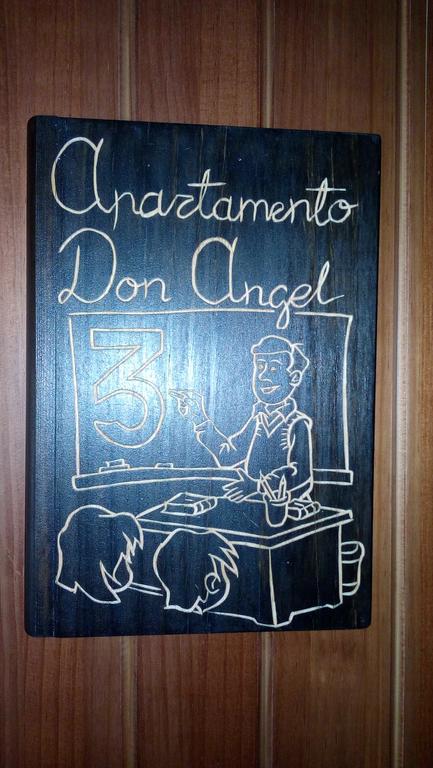 Apartamento
Don Angel
3